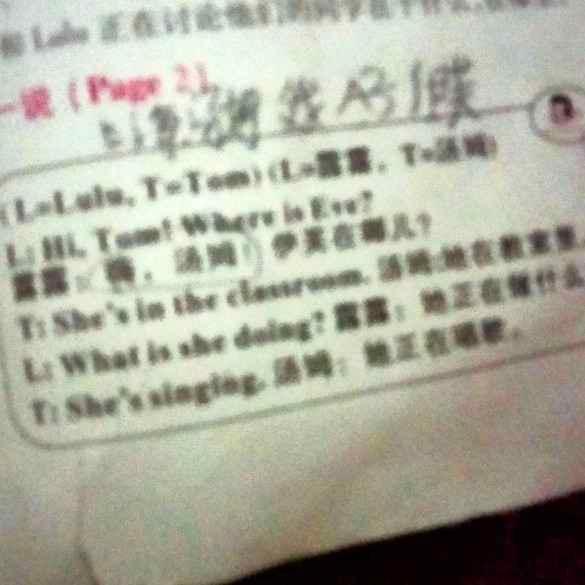 Lulu 正在讨论他们的同学在干什么
一说 (Page 2)
(L=Lulu, T=Tom) (L=露露, T=汤姆)
L: Hi, Tom! Where is Eve?
露露: 嗨, 汤姆! 伊芙在哪儿?
T: She's in the classroom. 汤姆:她在教室里
L: What is she doing? 露露: 她正在做什么
T: She's singing. 汤姆: 她正在唱歌。